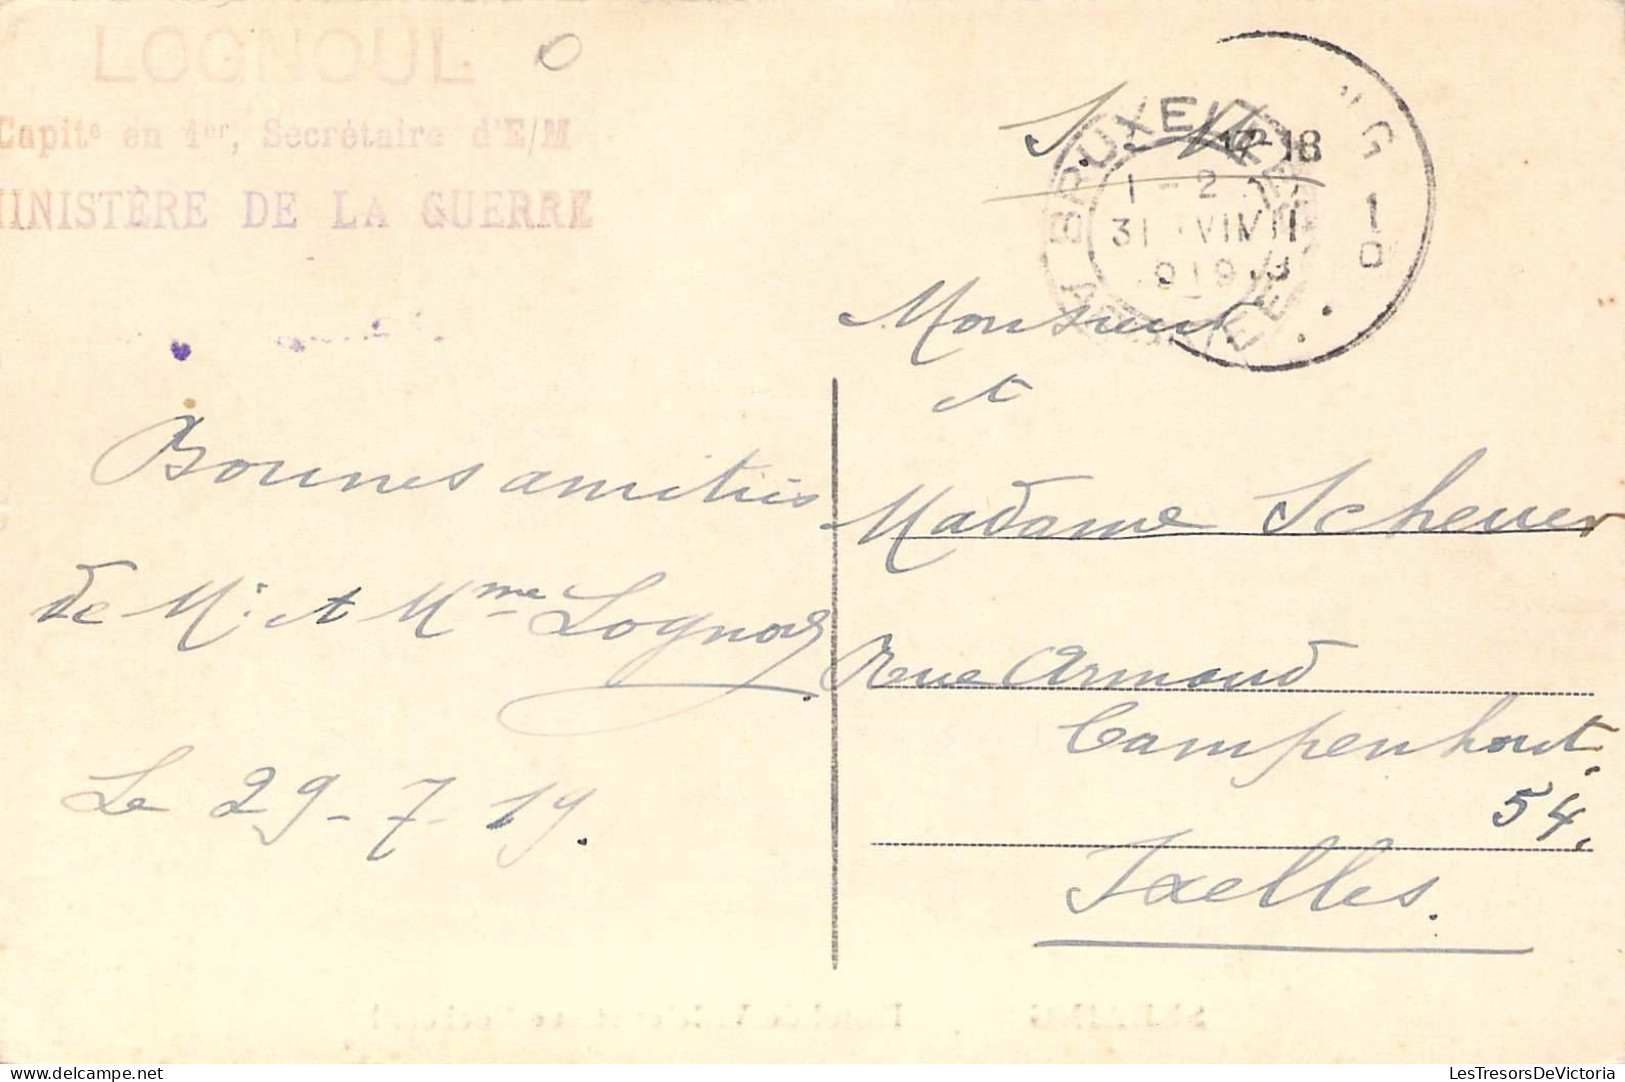 LOGNOUL
Capitᵉ en 1ᵉʳ, Secrétaire d'E/M
MINISTÈRE DE LA GUERRE
S. M.
BRUXELLES
17-18
1 - 2
31 VII
1919
Monsieur
et
Madame Scheuer
Rue Armand
Campenhout.
54.
Ixelles.
Bonnes amitiés
de Mʳ. et Mᵐᵉ Lognoul.
Le 29-7-19.
SERAING
LesTresorsDeVictoria - delcampe.net